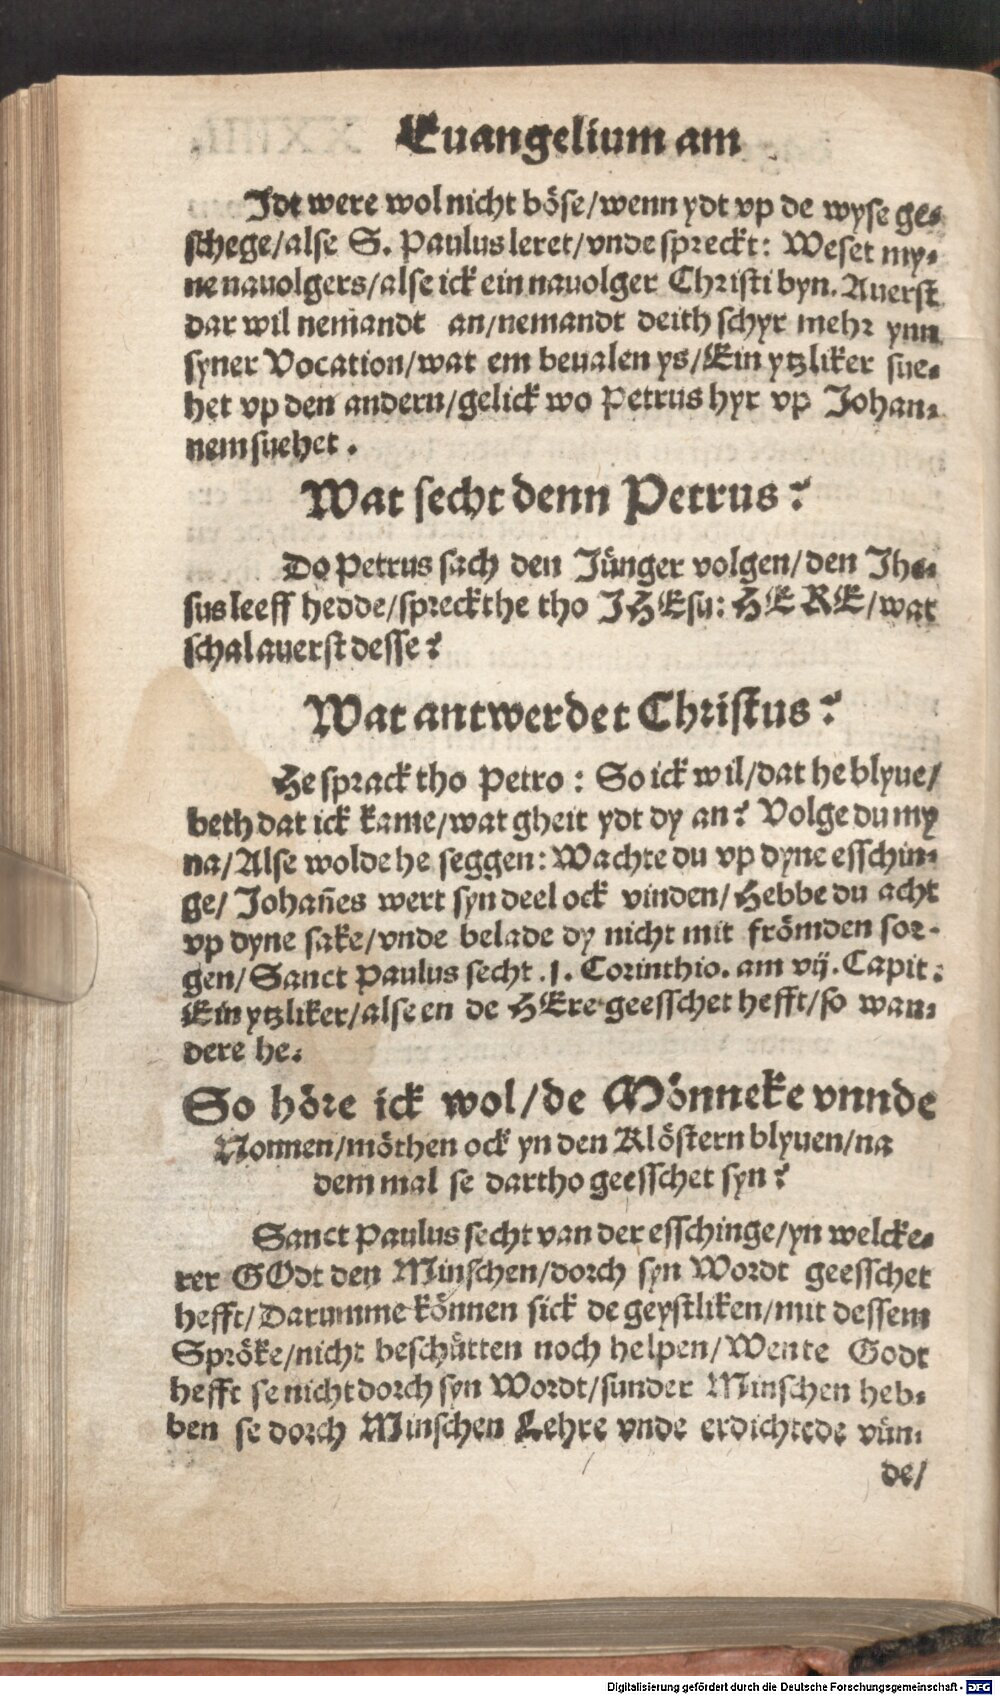 Euangelium am
Idt were wol nicht böse/wenn ydt vp de wyse ge-
schege/alse S. Paulus leret/vnde spreckt: Weset my-
ne nauolgers/alse ick ein nauolger Christi byn. Auerst
dar wil nemandt an/nemandt deith schyr mehr ynn
syner Vocation/wat em beualen ys/Ein ytzliker sue-
het vp den andern/gelick wo Petrus hyr vp Johan-
nem suehet.
Wat secht denn Petrus?
Do Petrus sach den Jünger volgen/den Jhe-
sus leeff hedde/spreckt he tho JHEsu: HERE/wat
schal auerst desse?
Wat antwerdet Christus?
He sprack tho Petro: So ick wil/dat he blyue/
beth dat ick kame/wat gheit ydt dy an? Volge du my
na/Alse wolde he seggen: Wachte du vp dyne esschin-
ge/ Johañes wert syn deel ock vinden/Hebbe du acht
vp dyne sake/vnde belade dy nicht mit frömden sor-
gen/Sanct Paulus secht .1. Corinthio. am vij. Capit:
Ein ytzliker/alse en de HEre geesschet hefft/so wan-
dere he.
So höre ick wol/de Mönneke vnnde
Nonnen/möthen ock yn den Klöstern blyuen/na
dem mal se dartho geesschet syn?
Sanct Paulus secht van der esschinge/yn welcke-
rer GOdt den Minschen/dorch syn Wordt geesschet
hefft/Darumme können sick de geystliken/mit dessem
Spröke/nicht beschütten noch helpen/Wente Godt
hefft se nicht dorch syn Wordt/sunder Minschen heb-
ben se dorch Minschen Lehre vnde erdichtede vün-
de/
Digitalisierung gefördert durch die Deutsche Forschungsgemeinschaft - DFG